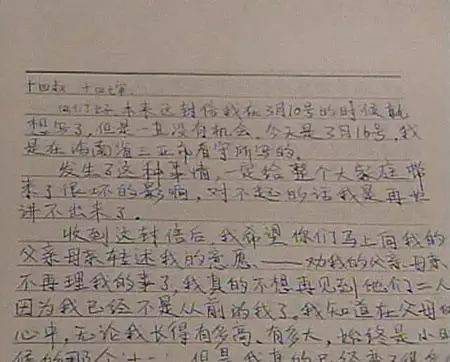 十四叔 十四婶
你们好,本来这封信我在3月10号的时候就
想写了,但是一直没有机会,今天是3月16号,我
是在海南省三亚市看守所写的。
发生了这种事情,一定给整个大家庭带
来了很坏的影响,对不起的话我是再也
讲不出来了。
收到这封信后,我希望你们马上向我的
父亲母亲转述我的意思、——劝我的父亲、母亲、
不再理我的事了,我真的不想再见到他们二人
因为我已经不是从前的我了,我知道在父母的
心中,无论我长得有多高、有多大,始终是小时
候的那个 但是我真的已经